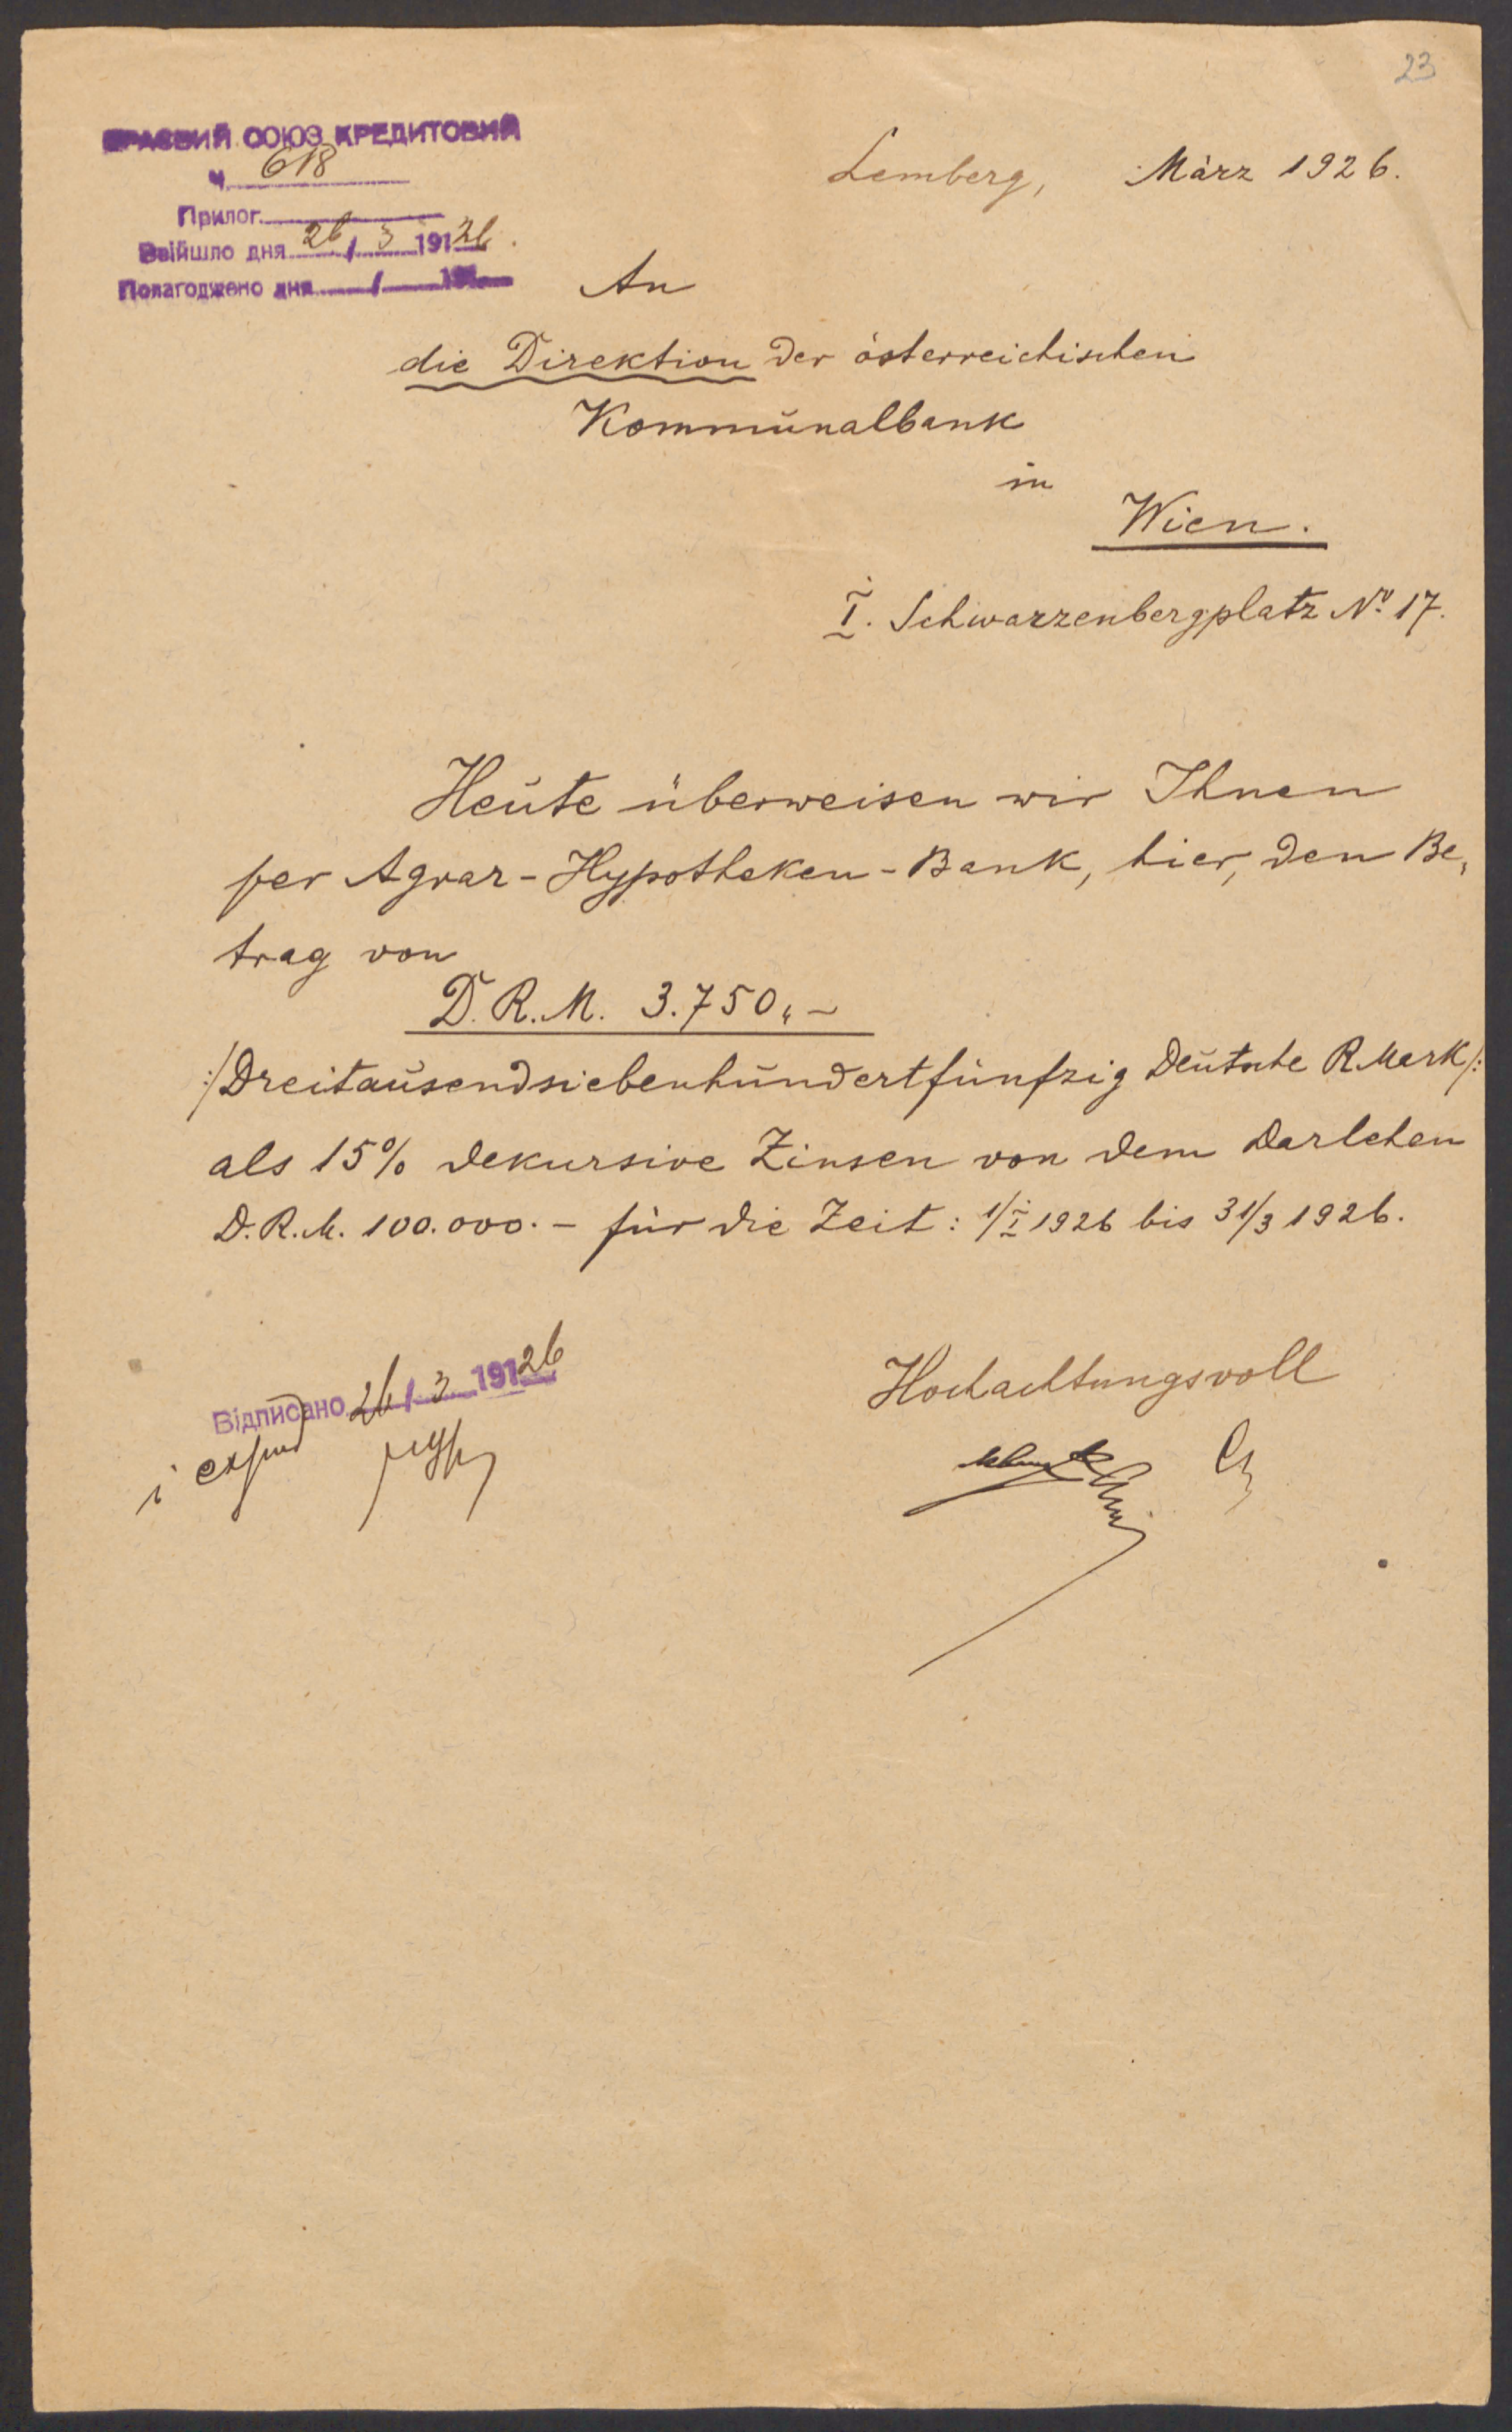 23
КРАЄВИЙ СОЮЗ КРЕДИТОВИЙ
Ч. 618
Прилог.
Ввійшло дня 26/3 19126.
Полагоджено дня / 191
Lemberg, März 1926.
An
die Direktion der österreichischen
Kommunalbank
in
Wien.
I. Schwarzenbergplatz No. 17.
Heute überweisen wir Ihnen
per Agrar-Hypotheken-Bank, hier, den Be-
trag von
D.R.M. 3.750.-
:/Dreitausendsiebenhundertfünfzig Deutsche R.Mark/:
als 15% dekursive Zinsen von dem Darlehen
D.R.M. 100.000.- für die Zeit: 1/I 1926 bis 31/3 1926.
Hochachtungsvoll
Відписано 26/3 19126
i expud